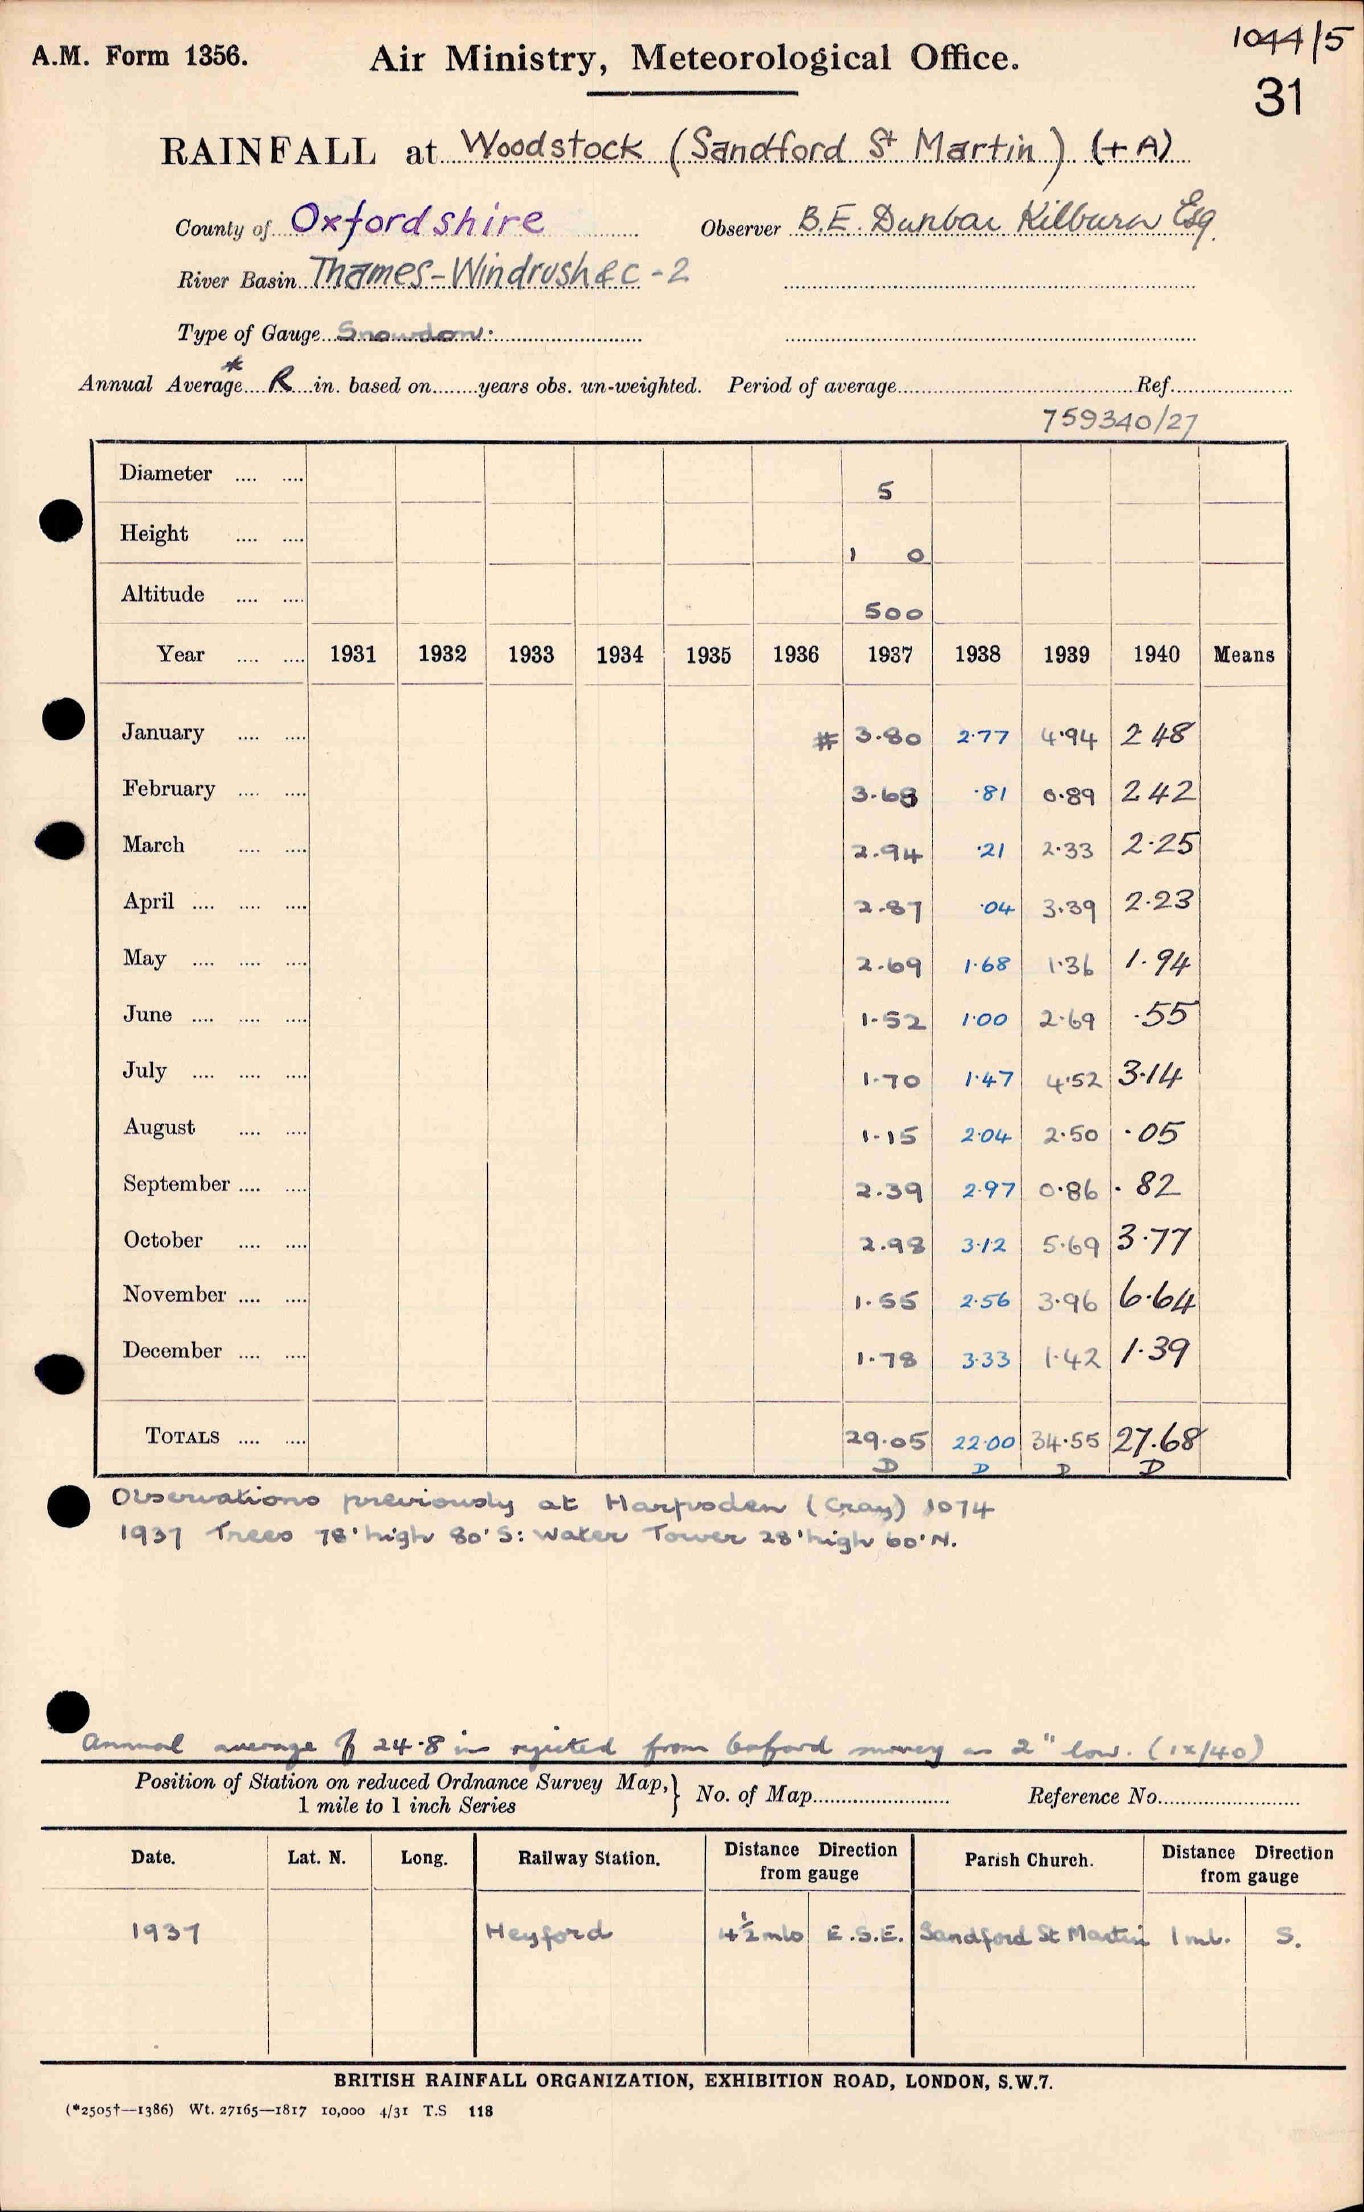 A.M. Form 1356.
Air Ministry, Meteorological Office.
1044/5
31
RAINFALL at Woodstock (Sandford St Martin) (+A)
County of Oxfordshire Observer B.E. Dunbar Kilburn Esq.
River Basin Thames-Windrush &c - 2
Type of Gauge Snowdon.
Annual Average* R in. based on........years obs. un-weighted. Period of average........ Ref........
759340/27
Diameter .... .... 5
Height .... .... 1 0
Altitude .... .... 500
Year .... .... 1931 1932 1933 1934 1935 1936 1937 1938 1939 1940 Means
January .... .... # 3.80 2.77 4.94 2.48
February .... .... 3.68 .81 0.89 2.42
March .... .... 2.94 .21 2.33 2.25
April .... .... .... 2.87 .04 3.39 2.23
May .... .... .... 2.69 1.68 1.36 1.94
June .... .... .... 1.52 1.00 2.69 .55
July .... .... .... 1.70 1.47 4.52 3.14
August .... .... 1.15 2.04 2.50 .05
September .... .... 2.39 2.97 0.86 .82
October .... .... 2.98 3.12 5.69 3.77
November .... .... 1.55 2.56 3.96 6.64
December .... .... 1.78 3.33 1.42 1.39
TOTALS .... .... 29.05 22.00 34.55 27.68
D D D D
Observations previously at Harpsden (Cray) 1074
1937 Trees 78' high 80' S: Water Tower 28' high 60' N.
Annual average of 24.8 in rejected from Oxford survey as 2" low. (ix/40)
Position of Station on reduced Ordnance Survey Map,} No. of Map........ Reference No........
1 mile to 1 inch Series
Date. Lat. N. Long. Railway Station. Distance Direction from gauge Parish Church. Distance Direction from gauge
1937 Heyford 4½ mls E.S.E. Sandford St Martin 1 ml. S.
BRITISH RAINFALL ORGANIZATION, EXHIBITION ROAD, LONDON, S.W.7.
(*2505†—1386) Wt. 27165—1817 10,000 4/31 T.S 118